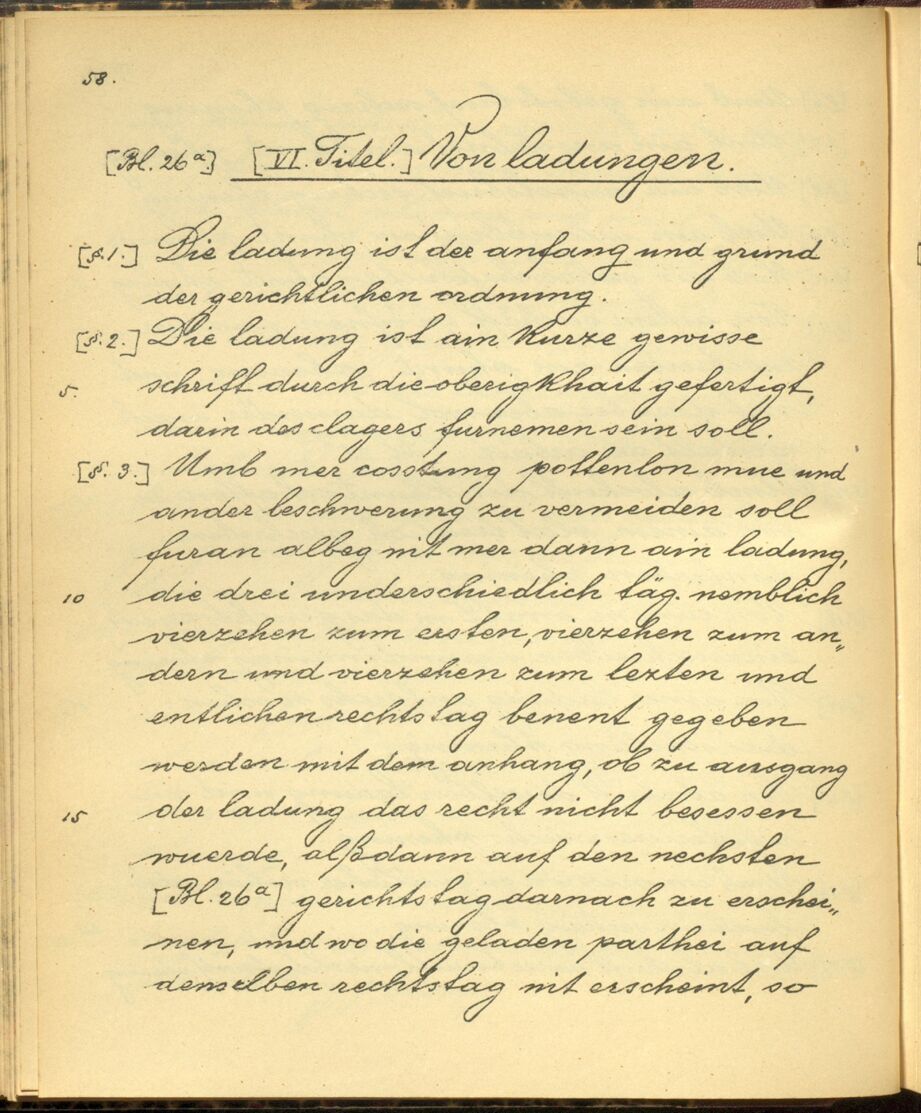 58.
[Bl. 26a] [VI. Titel.] Von ladungen.
[§. 1.] Die ladung ist der anfang und grund
der gerichtlichen ordnung.
[§. 2.] Die ladung ist ain kurze gewisse
5. schrift durch die oberigkhait gefertigt,
darin des clagers furnemen sein soll.
[§. 3.] Umb mer cosstung pottenlon mue und
ander beschwerung zu vermeiden soll
furan albeg nit mer dann ain ladung,
10 die drei underschiedlich täg. nemblich
vierzehen zum ersten, vierzehen zum an„
dern und vierzehen zum lezten und
entlichen rechtstag benent gegeben
werden mit dem anhang, ob zu ausgang
15 der ladung das recht nicht besessen
wuerde, alßdann auf den nechsten
[Bl. 26a] gerichtstag darnach zu erschei„
nen, und wo die geladen parthei auf
demselben rechtstag nit erscheint, so